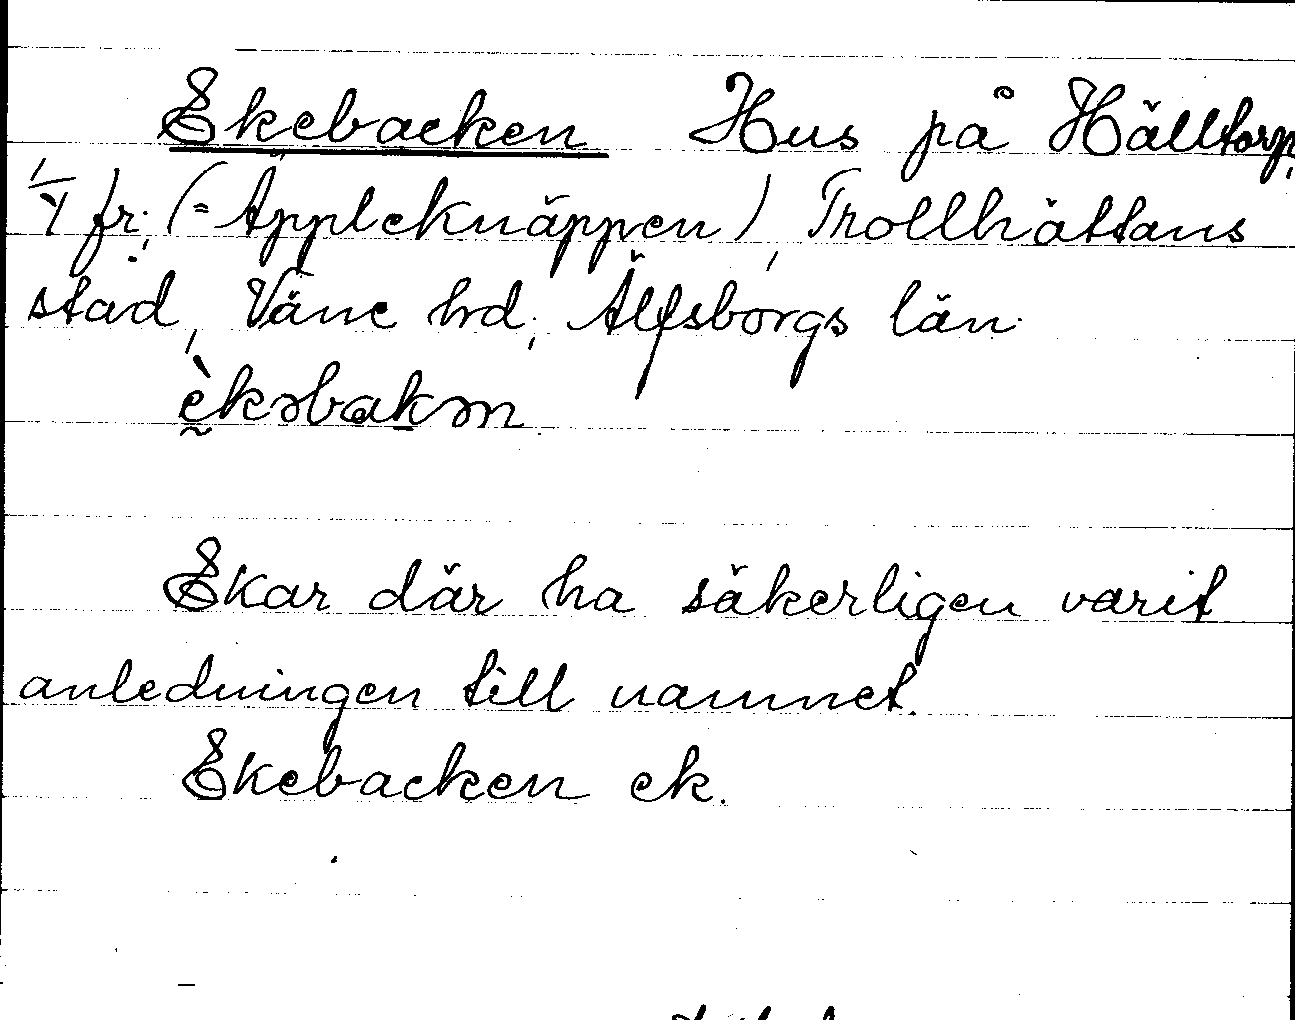 Ekebacken Hus på Hälltorp,
1/4 fr; (= Äppleknäppen), Trollhättans
stad, Väne hd, Älfsborgs län.
ḛ̀kəbakən
Ekar där ha säkerligen varit
anledningen till namnet.
Ekebacken ek.